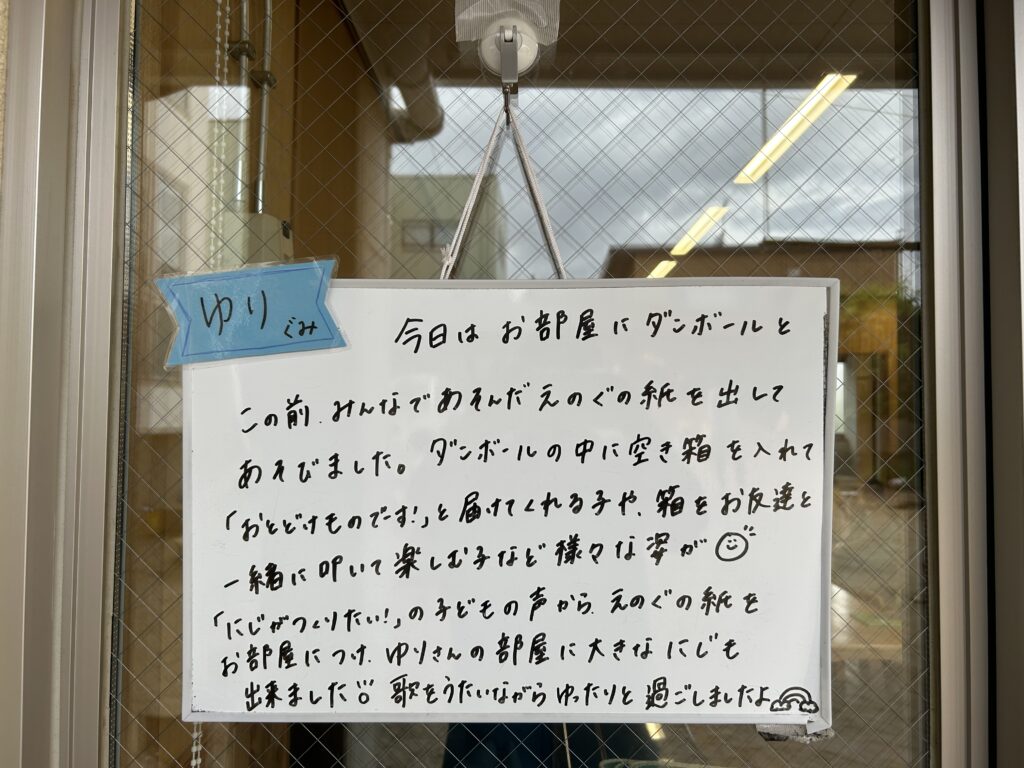 ゆり ぐみ
今日は お部屋に ダンボールと
この前、みんなであそんだ えのぐの紙を出して
あそびました。ダンボールの中に空き箱を入れて
「おとどけものでーす!」と届けてくれる子や、箱をお友達と
一緒に叩いて楽しむ子など様々な姿が
「にじがつくりたい!」の子どもの声から、えのぐの紙を
お部屋につけ、ゆりさんの部屋に大きなにじも
出来ました 歌をうたいながらゆったりと過ごしましたよ